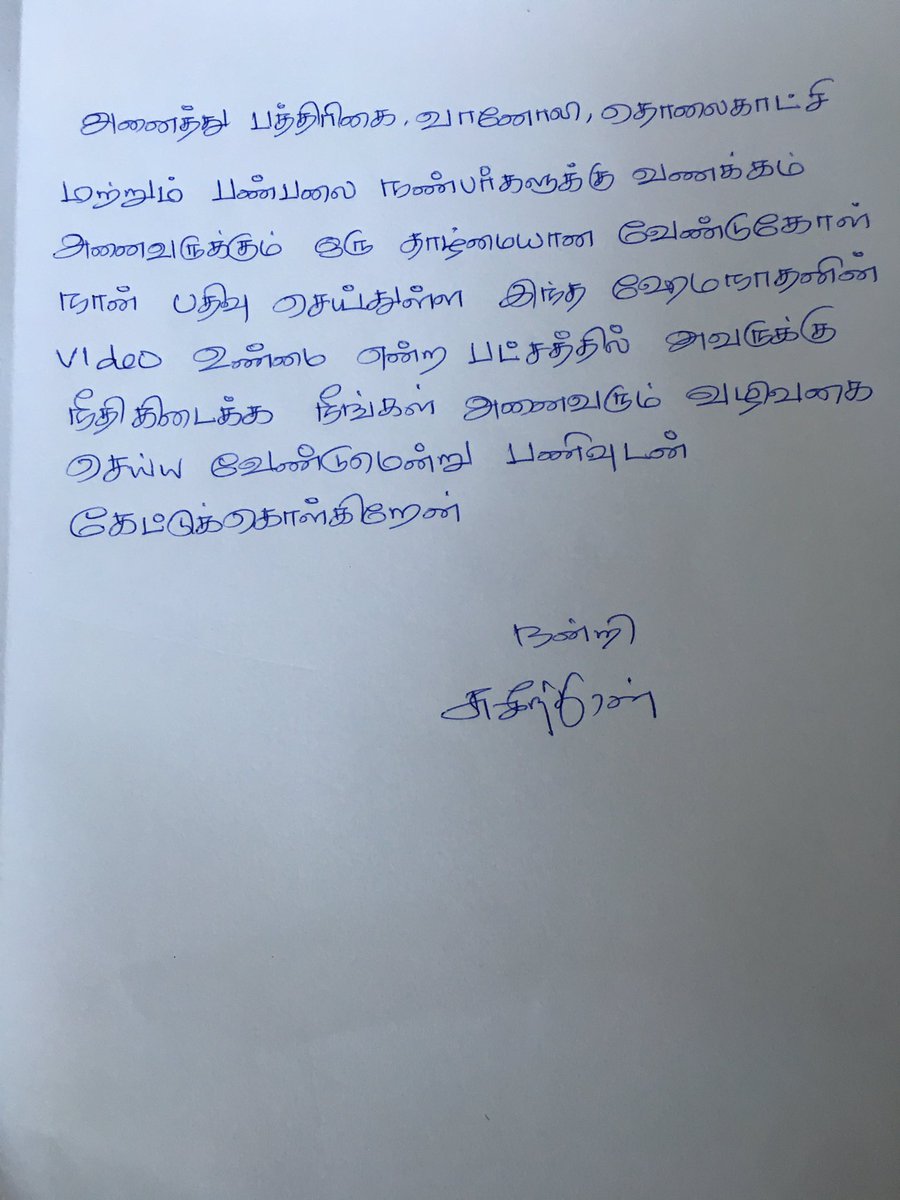 அனைத்து பத்திரிகை, வானோலி, தொலைகாட்சி
மற்றும் பண்பலை நண்பர்களுக்கு வணக்கம்
அனைவருக்கும் ஒரு தாழ்மையான வேண்டுகோள்
நான் பதிவு செய்துள்ள இந்த ஹேமநாதனின்
Video உண்மை என்ற பட்சத்தில் அவருக்கு
நீதிகிடைக்க நீங்கள் அனைவரும் வழிவகை
செய்ய வேண்டுமென்று பணிவுடன்
கேட்டுக்கொள்கிறேன்
நன்றி
சுசீந்திரன்